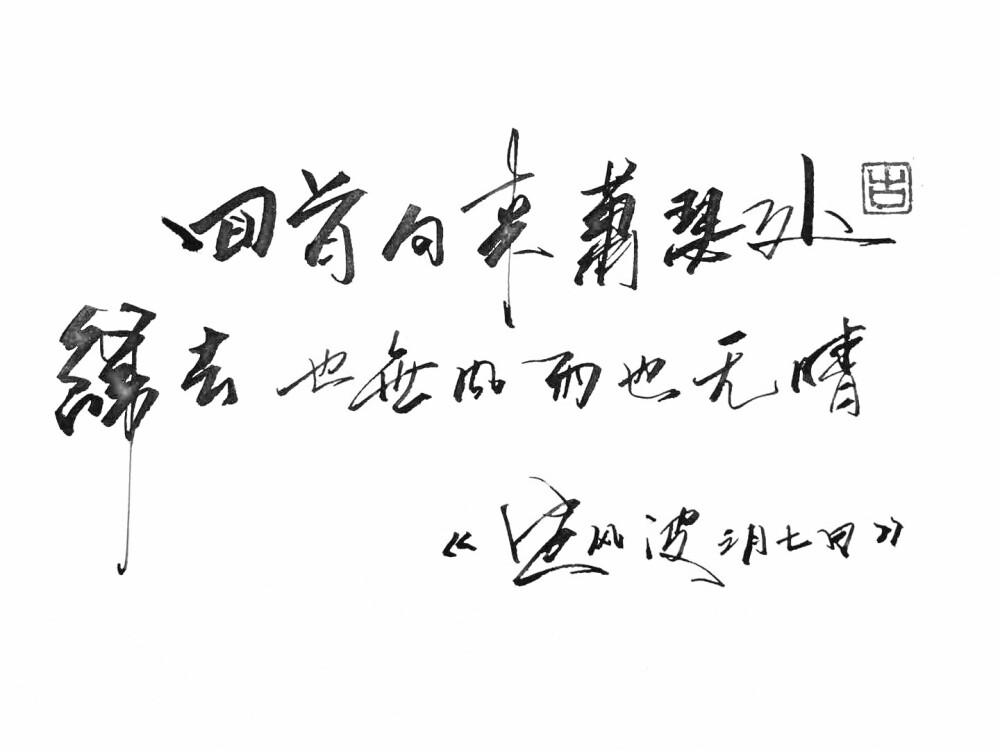 回首向来蕭瑟处
歸去 也無风雨也无晴
《定风波 三月七日》